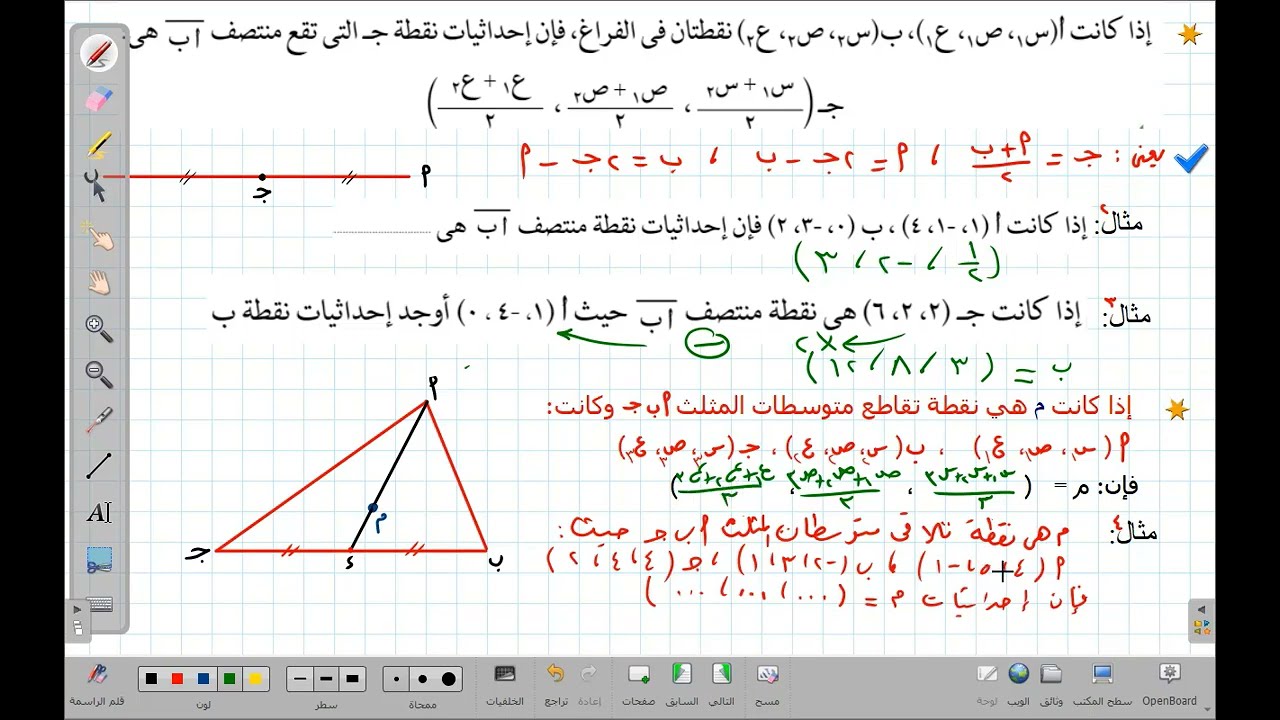 إذا كانت أ(س١، ص١، ع١)، ب(س٢، ص٢، ع٢) نقطتان فى الفراغ، فإن إحداثيات نقطة جـ التى تقع منتصف أب هى:
جـ(س١ + س٢ / ٢ ، ص١ + ص٢ / ٢ ، ع١ + ع٢ / ٢)
يعنى: جـ = أ + ب / ٢ ، أ = ٢جـ - ب ، ب = ٢جـ - أ
أ جـ ب
مثال٢: إذا كانت أ (١، -١، ٤) ، ب (٠، -٣، ٢) فإن إحداثيات نقطة منتصف أب هى ..............
(١/٢ ، -٢ ، ٣)
مثال٣: إذا كانت جـ (٢، ٢، ٦) هى نقطة منتصف أب حيث أ (١، -٤، ٠) أوجد إحداثيات نقطة ب
×٢ -
ب = (٣ ، ٨ ، ١٢)
إذا كانت م هي نقطة تقاطع متوسطات المثلث أ ب جـ وكانت:
أ (س١، ص١، ع١) ، ب(س٢، ص٢، ع٢) ، جـ(س٣، ص٣، ع٣)
فإن: م = (س١+س٢+س٣ / ٣ ، ص١+ص٢+ص٣ / ٣ ، ع١+ع٢+ع٣ / ٣)
مثال٤: م هى نقطة تلاقى متوسطات المثلث أ ب جـ حيث:
أ (٤، ٥، -١) ، ب (-٢، ٣، ١) ، جـ (٤، ٤، ٢)
فإن إحداثيات م = (... ، ... ، ...)
أ
م
جـ ء ب
قلم الراسمة لون سطر ممحاة الخلفيات تراجع إعادة صفحات السابق التالي مسح لوحة الويب وثائق سطح المكتب OpenBoard